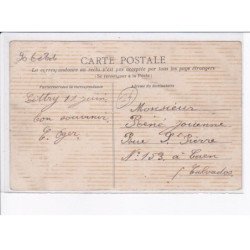 CARTE POSTALE
La correspondance au recto n'est pas acceptée par tous les pays étrangers
(Se renseigner à la Poste)
Correspondance
Adresse du Destinataire
11 juin
bon souvenir
E. Oger
Monsieur
René Jouenne
Rue St Pierre
No 153, à Caen
Calvados